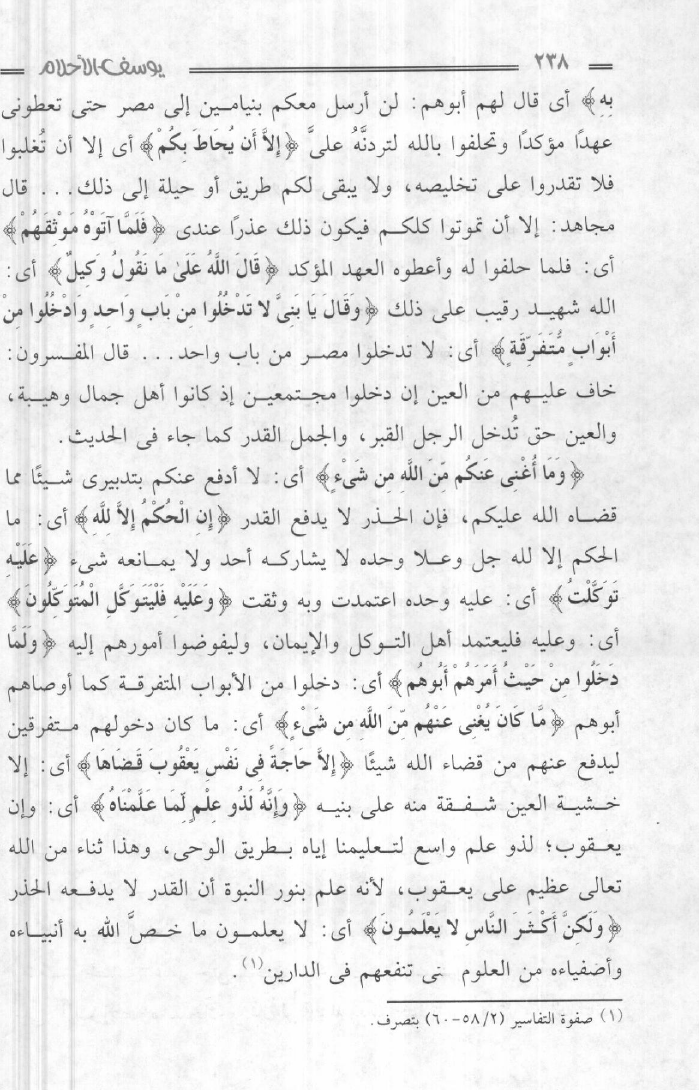 ٢٣٨ يوسف الأحلام
بِهِ﴾ أى قال لهم أبوهم: لن أرسل معكم بنيامين إلى مصر حتى تعطونى
عهدًا مؤكدًا وتحلفوا بالله لتردنَّهُ علىَّ ﴿إِلاَّ أَن يُحَاطَ بِكُمْ﴾ أى إلا أن تُغلبوا
فلا تقدروا على تخليصه، ولا يبقى لكم طريق أو حيلة إلى ذلك... قال
مجاهد: إلا أن تموتوا كلكم فيكون ذلك عذرًا عندى ﴿فَلَمَّا آتَوْهُ مَوْثِقَهُمْ﴾
أى: فلما حلفوا له وأعطوه العهد المؤكد ﴿قَالَ اللَّهُ عَلَىٰ مَا نَقُولُ وَكِيلٌ﴾ أى:
الله شهيد رقيب على ذلك ﴿وَقَالَ يَا بَنِىَّ لا تَدْخُلُوا مِنْ بَابٍ وَاحدٍ وَادْخُلُوا مِنْ
أَبْوَابٍ مُّتَفَرِّقَةٍ﴾ أى: لا تدخلوا مصر من باب واحد... قال المفسرون:
خاف عليهم من العين إن دخلوا مجتمعين إذ كانوا أهل جمال وهيبة،
والعين حق تُدخل الرجل القبر، والجمل القدر كما جاء فى الحديث.
﴿وَمَا أُغْنِى عَنكُم مِّنَ اللَّهِ مِن شَىْءٍ﴾ أى: لا أدفع عنكم بتدبيرى شيئًا مما
قضاه الله عليكم، فإن الحذر لا يدفع القدر ﴿إِنِ الْحُكْمُ إِلاَّ لِلَّهِ﴾ أى: ما
الحكم إلا لله جل وعلا وحده لا يشاركه أحد ولا يمانعه شىء ﴿عَلَيْهِ
تَوَكَّلْتُ﴾ أى: عليه وحده اعتمدت وبه وثقت ﴿وَعَلَيْهِ فَلْيَتَوَكَّلِ الْمُتَوَكِّلُونَ﴾
أى: وعليه فليعتمد أهل التوكل والإيمان، وليفوضوا أمورهم إليه ﴿وَلَمَّا
دَخَلُوا مِنْ حَيْثُ أَمَرَهُمْ أَبُوهُم﴾ أى: دخلوا من الأبواب المتفرقة كما أوصاهم
أبوهم ﴿مَّا كَانَ يُغْنِى عَنْهُم مِّنَ اللَّهِ مِن شَىْءٍ﴾ أى: ما كان دخولهم متفرقين
ليدفع عنهم من قضاء الله شيئًا ﴿إِلاَّ حَاجَةً فِى نَفْسِ يَعْقُوبَ قَضَاهَا﴾ أى: إلا
خشية العين شفقة منه على بنيه ﴿وَإِنَّهُ لَذُو عِلْمٍ لِّمَا عَلَّمْنَاهُ﴾ أى: وإن
يعقوب؛ لذو علم واسع لتعليمنا إياه بطريق الوحى، وهذا ثناء من الله
تعالى عظيم على يعقوب، لأنه علم بنور النبوة أن القدر لا يدفعه الحذر
﴿وَلَكِنَّ أَكْثَرَ النَّاسِ لا يَعْلَمُونَ﴾ أى: لا يعلمون ما خصَّ الله به أنبياءه
وأصفياءه من العلوم تنفعهم فى الدارين(١).
(١) صفوة التفاسير (٢/ ٥٨-٦٠) بتصرف.